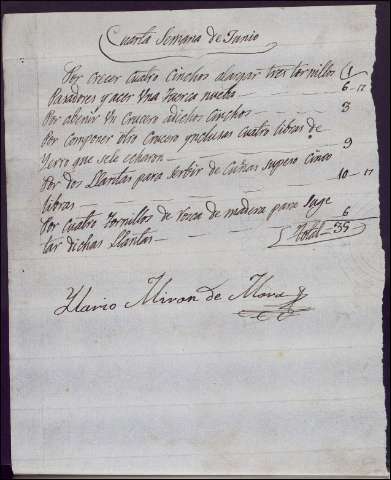 Cuarta Semana de Junio
Por crecer cuatro Cinchos alargar tres tornillos
Pasadores y acer Una tuerca nueba 6-17
Por abenir Un Crucero adichos Cinchos 3
Por componer otro Crucero ynclusas Cuatro libras de
Yerro que sele echaron 9
Por dos Llantas para serbir de Cuñas supeso Cinco
libras 10-17
Por Cuatro tornillos de rosca de madera para suge
tar dichas Llantas 6
Total 35
Ylario Miron de Mora